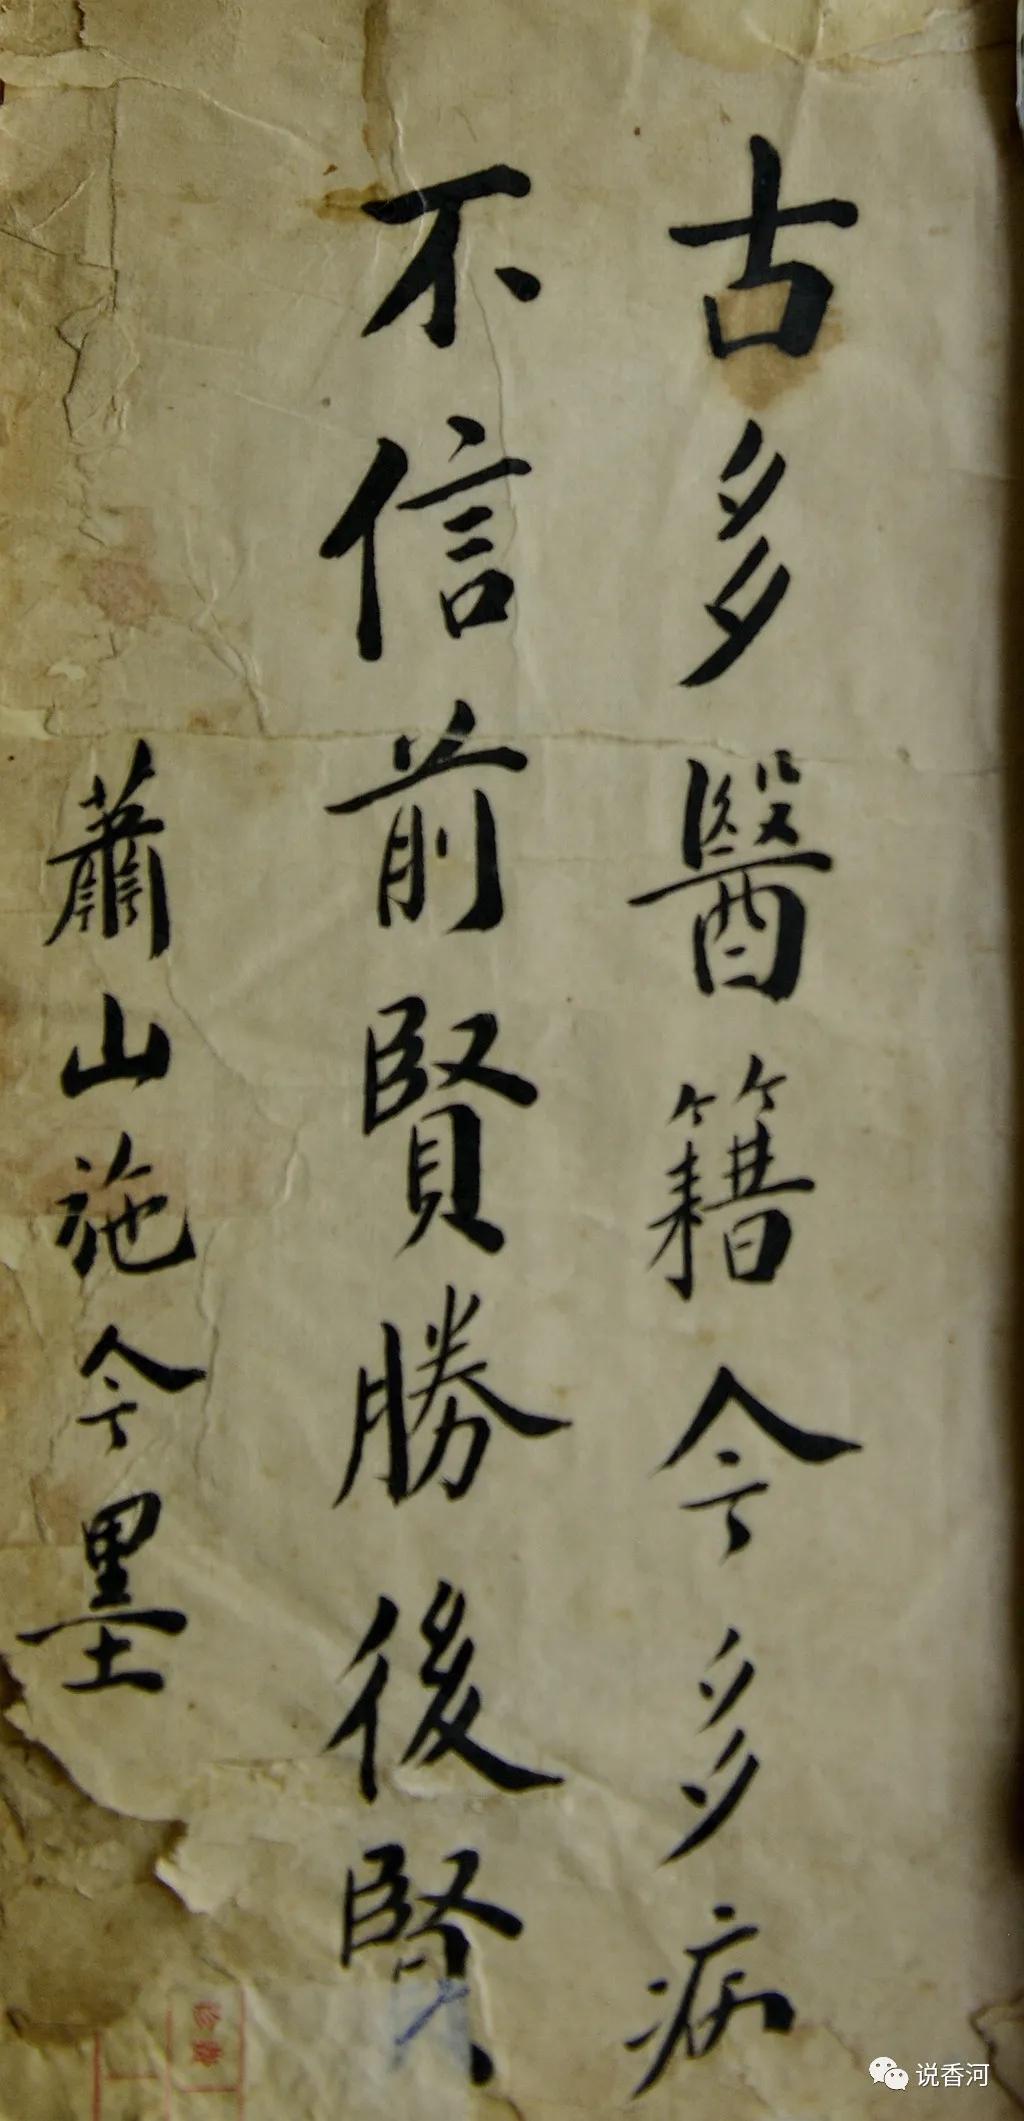 古多醫籍今多病
不信前賢勝後賢
蕭山施今墨
说香河